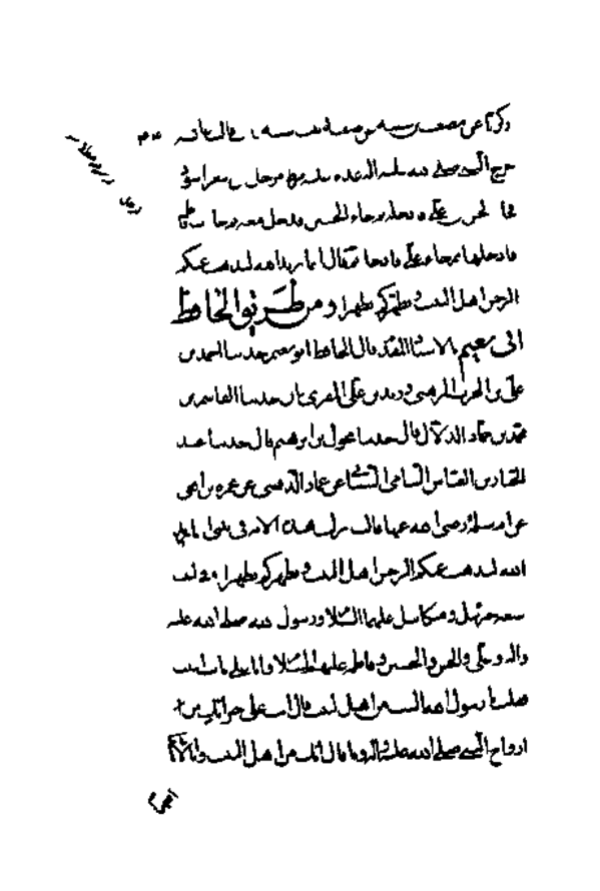 ذكريا عن مصعب بن شيبة عن صفية بنت شيبة قالت عائشة
خرج النبي صلى الله عليه غداة وعليه مرط مرحل من شعر اسود
فجا الحسن بن علي فادخله ثم جاء الحسين فدخل معه ثم جات فاطمة
فادخلها ثم جاء علي فادخله ثم قال انما يريد الله ليذهب عنكم
الرجس اهل البيت ويطهركم تطهيرا ومن طريق الحافظ
ابي نعيم بالاسناد المقدم قال الحافظ ابو نعيم حدثنا احمد بن
علي بن الحرث المرهبي وزيد بن علي المقري قالا حدثنا القاسم بن
محمد بن حماد الدلال قال حدثنا مخول بن ابرهيم قال حدثنا عبد
الجبار بن العباس الشبامي عن عمار الدهني عن عمرة بنت افعى
عن ام سلمة رضى الله عنها قالت نزلت هذه الاية في بيتي انما يريد
الله ليذهب عنكم الرجس اهل البيت ويطهركم تطهيرا وفي البيت
سبعة جبرئيل وميكائيل عليهما السلام ورسول الله صلى الله عليه
واله وعلي والحسن والحسين وفاطمة عليهم السلام وانا على باب البيت
فقلت يا رسول الله الست من اهل البيت قال انك على خير انك من
ازواج النبي صلى الله عليه واله وما قال انك من اهل البيت وبالاسناد